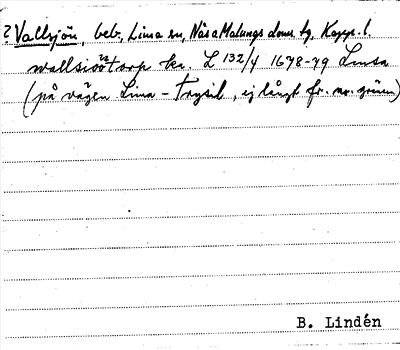 ? Vallsjön, beb., Lima sn, Nås a Malungs doms tg, Kopp. l.
wallsiöötorp ka. L 132/4 1678-79 Limsa
(på vägen Lima - Trysil, ej långt fr. no. gränsen)
B. Lindén